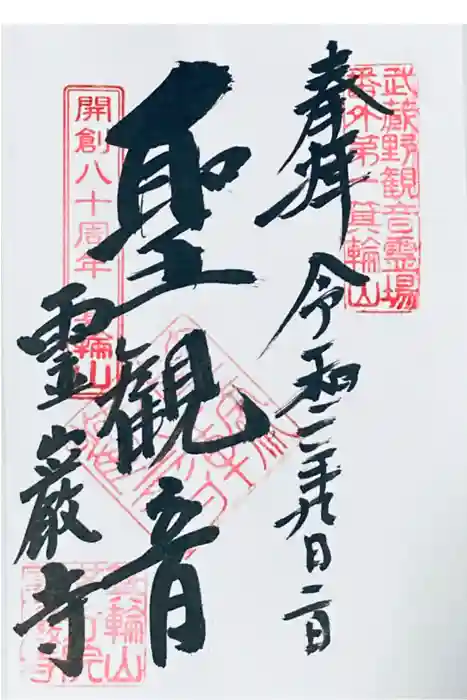 武蔵野観音霊場
番外第一箕輪山
奉拝 令和二年九月二日
聖観音
開創八十周年 輪山
霊巌寺
箕輪山